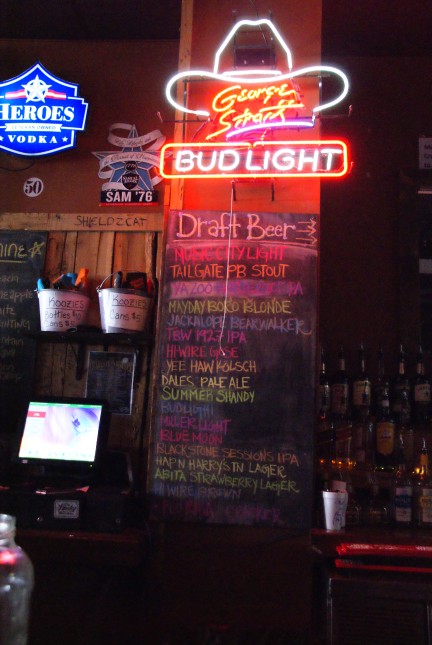 HEROES
VETERAN OWNED
VODKA
50
SAM '76
George
Strait
BUD LIGHT
SHIELDZCAT
KOOZIES
Bottles
Cans
KOOZIES
Cans
Draft Beer
MUSIC CITY LIGHT
TAILGATE PB STOUT
MAYDAY BORO BLONDE
JACKALOPE BEARWALKER
TBW 1927 IPA
HI-WIRE GOSE
YEE HAW KÖLSCH
DALES PALE ALE
SUMMER SHANDY
BUD LIGHT
MILLER LIGHT
BLUE MOON
BLACKSTONE SESSIONS IPA
HAP'N HARRYS TN LAGER
ABITA STRAWBERRY LAGER
WIRE BROWN